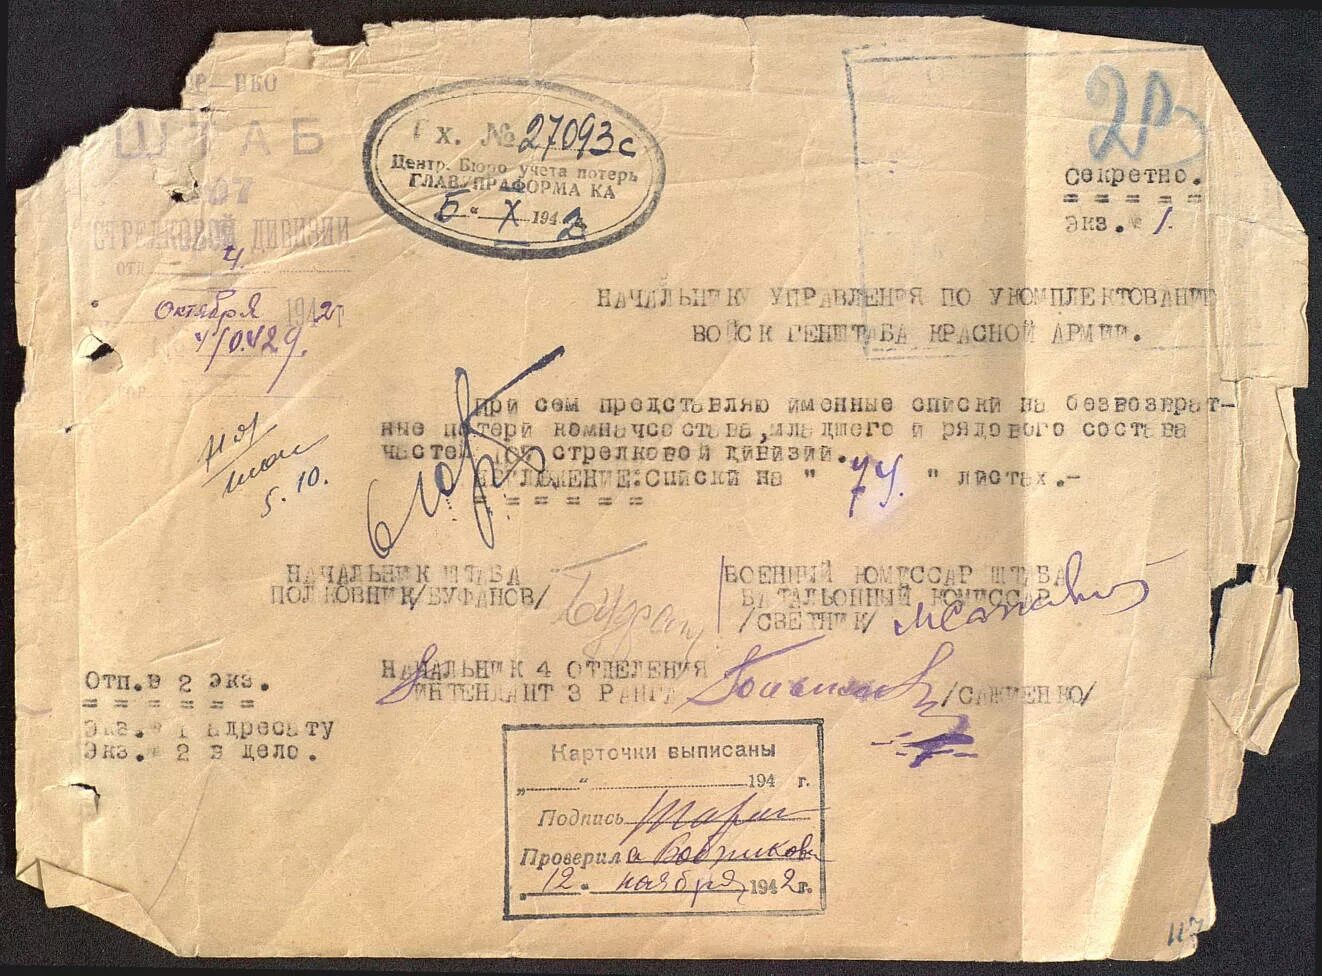 Р—НКО
ШТАБ
07
СТРЕЛКОВОЙ ДИВИЗИИ
ОТД. 4.
Октября 1942г
4/0429.
5.10.
Вх. № 27093с
Центр. Бюро учета потерь
ГЛАВУПРАФОРМА КА
5 " X 1942
20
Секретно.
= = = = =
Экз.№ 1.
НАЧАЛЬНИКУ УПРАВЛЕНИЯ ПО УКОМПЛЕКТОВАНИЮ
ВОЙСК ГЕНШТАБА КРАСНОЙ АРМИИ.
При сем представляю именные списки на безвозврат-
ные потери комначсостава, младшего и рядового состава
частей стрелковой дивизии.
ПРИЛОЖЕНИЕ: Списки на " 74. " листах.-
= = = = = =
НАЧАЛЬНИК ШТАБА
ПОЛКОВНИК/БУФАНОВ/
ВОЕННЫЙ КОМИССАР ШТАБА
БАТАЛЬОННЫЙ КОМИССАР
/СВЕТНИК/
НАЧАЛЬНИК 4 ОТДЕЛЕНИЯ
ИНТЕНДАНТ 3 РАНГА /САЖИЕНКО/
Отп.в 2 экз.
= = = = = =
Экз.№ 1 адресату
Экз.№ 2 в дело.
Карточки выписаны
„ “ 194 г.
Подпись
Проверила
„12“ ноября 1942г.